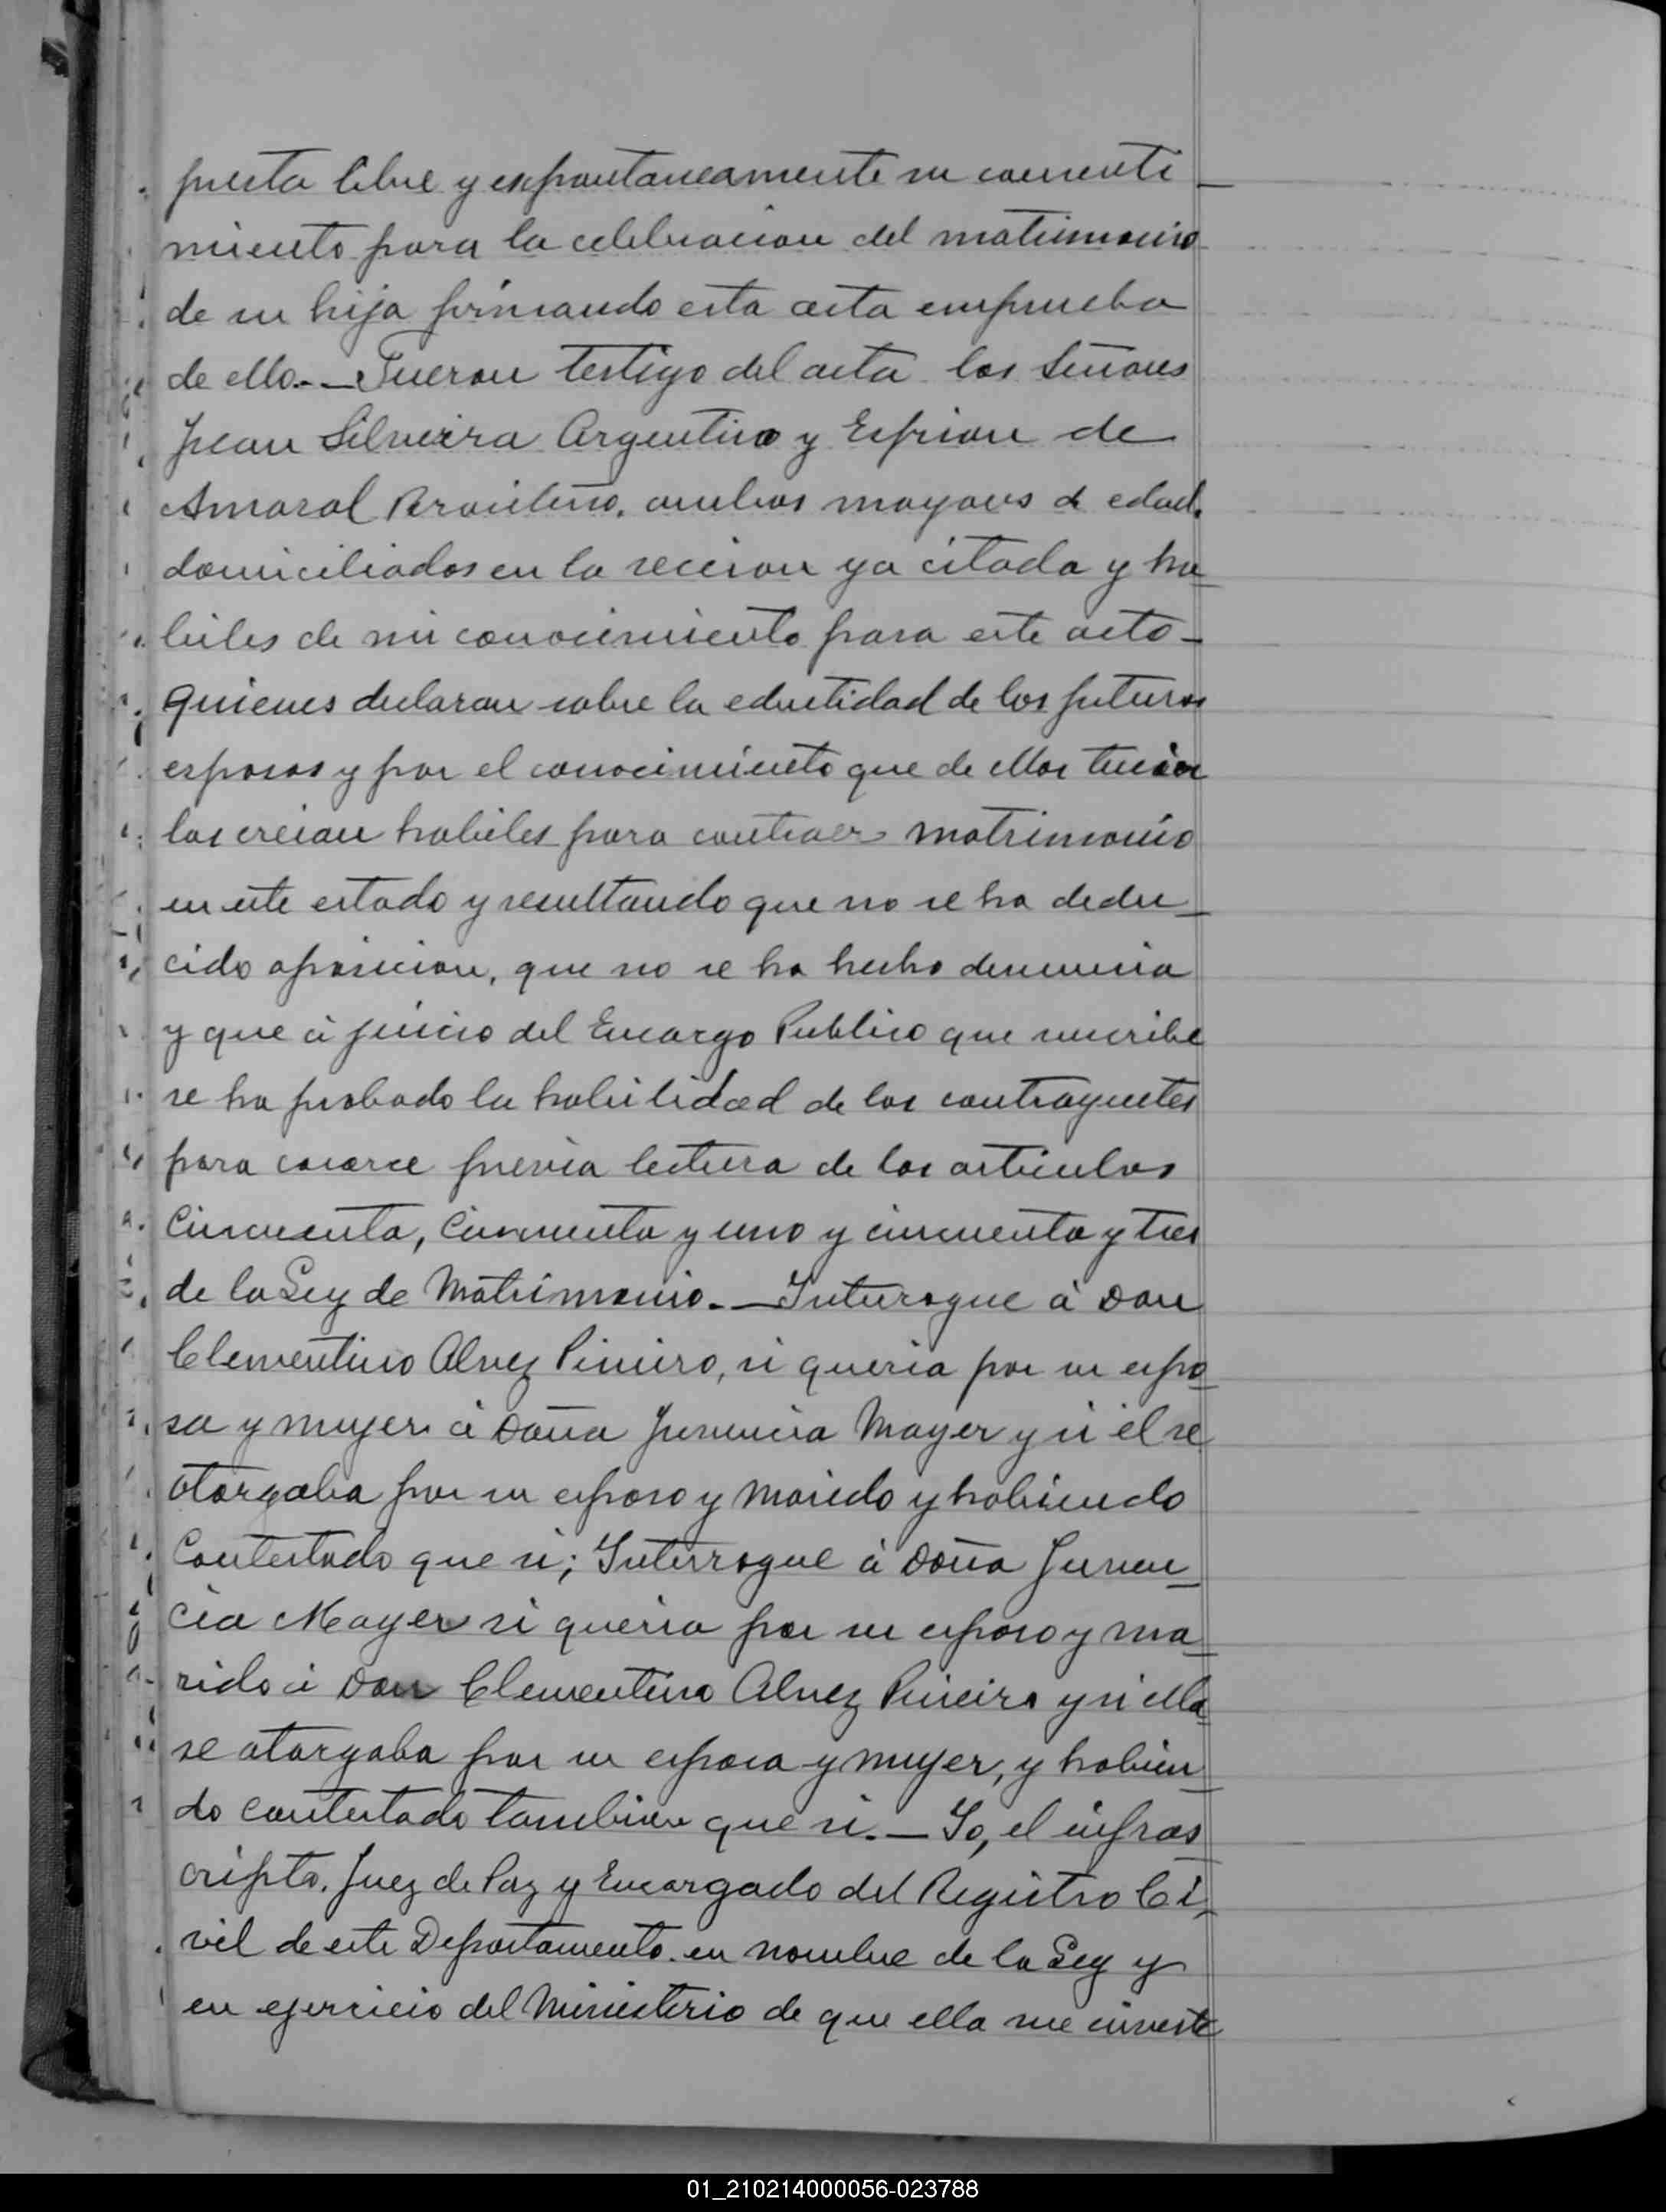 presta libre y expontaneamente su consenti_
miento para la celebracion del matrimonio
de su hija firmando esta acta en prueba
de ello.- _ Fueron testigo del acta los Señores
Juan Silveira Argentino y de
Amaral Brasilero, ambos mayores de edad,
domiciliados en la seccion ya citada y ha_
biles de mi conocimiento para este acto_
quienes declaran sobre la edentidad de los futuros
esposos y por el conocimiento que de ellos tenian
los creian habiles para contraer matrimonio
en este estado y resultando que no se ha dedu_
cido oposicion, que no se ha hecho denuncia
y que á juicio del Encargo Publico que suscribe
se ha probado la habilidad de los contrayentes
para casarce previa lectura de los articulos
Cincuenta, Cincuenta y uno y cincuenta y tres
de la Ley de Matrimonio. _ Interrogue á Don
Clementino Alvez Piniero, si queria por su espo_
sa y mujer á Doña Juvencia Mayer y si él se
otorgaba por su esposo y marido y habiendo
Contestado que si; Interrogue á Doña Juven_
cia Mayer si queria por su esposo y ma_
rido á Don Clementino Alvez Pineiro y si ella
se otorgaba por su esposa y mujer, y habien_
do contestado tambien que si. _ Yo, el infras_
cripto, Juez de Paz y Encargado del Registro Ci_
vil de este Departamento en nombre de la Ley y
en ejercicio del Ministerio de que ella me inviste
01_210214000056-023788